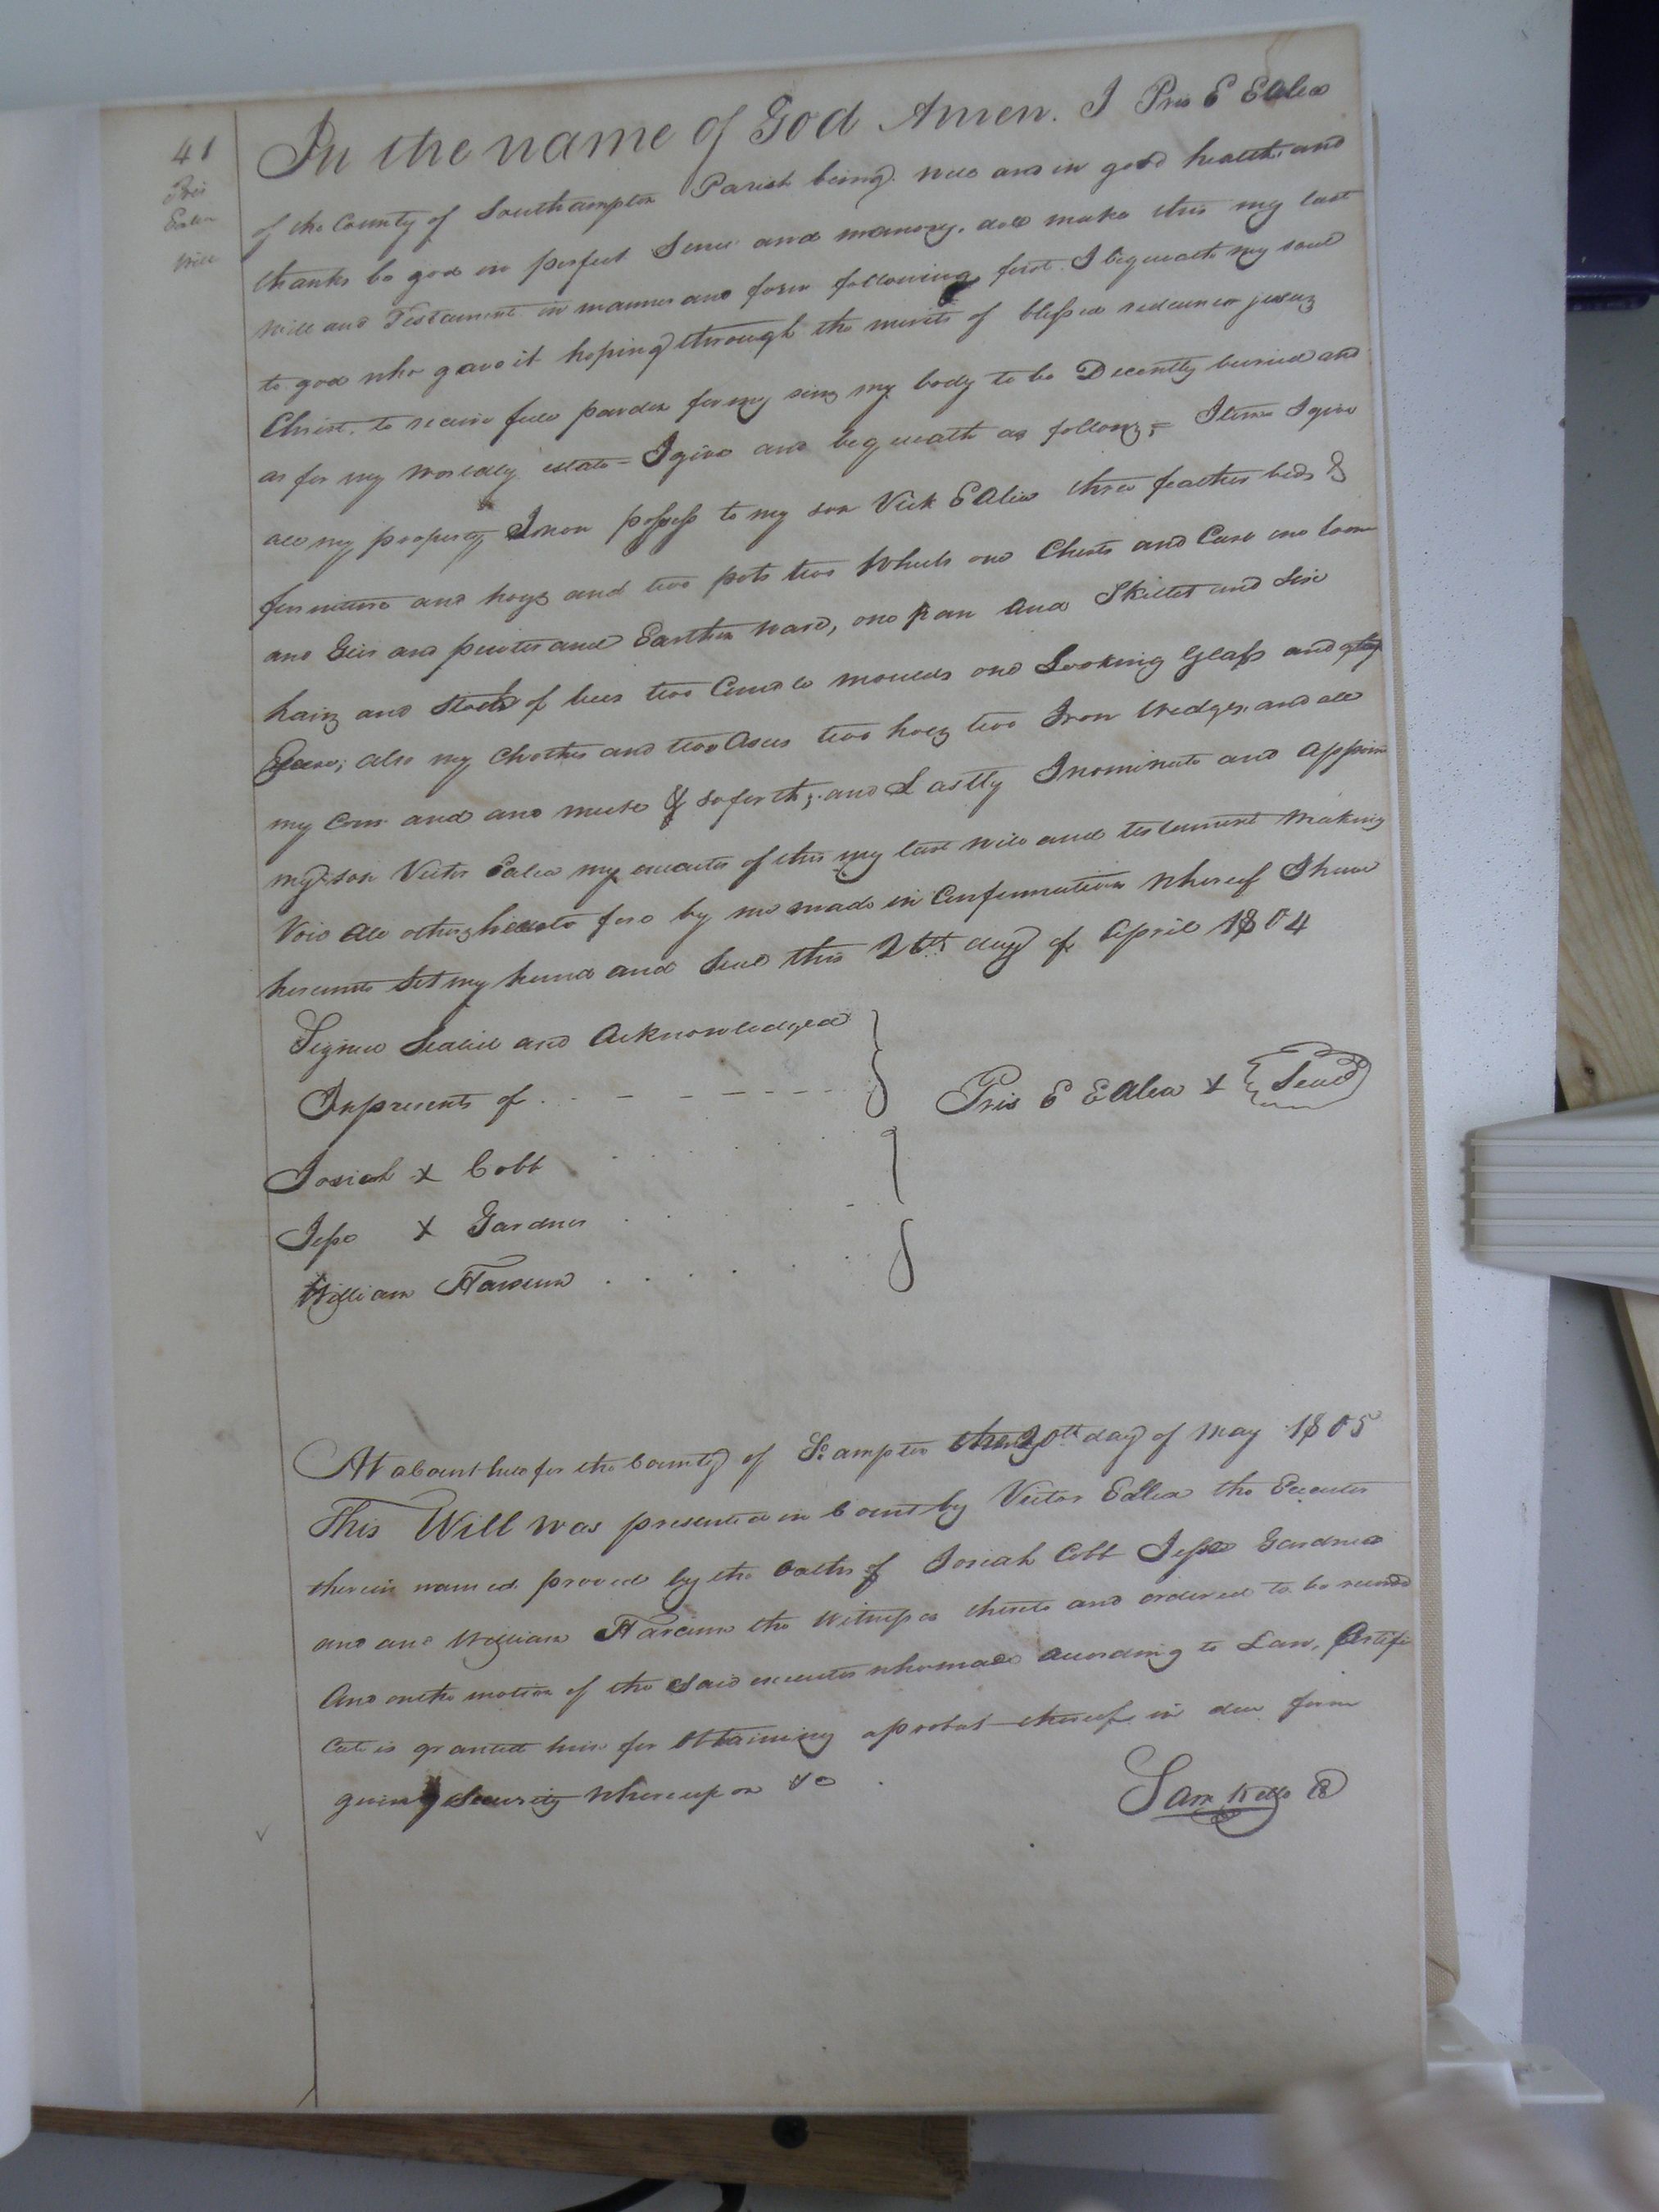 41
Pris
Ealea
Will
In the name of God Amen. I Pris E Ealea
of the County of Southampton Parish being well and in good health and
thanks be god in perfect Sense and memory, doe make this my last
will and Testament in manner and form following, first I bequeath my soul
to god who gave it hoping through the merits of blessed redeemer jesus
Christ, to receive full pardon for my sins my body to be Decently buried and
as for my worldly estate - I give and bequeath as follows, = Item I give
all my property I now possess to my son Vick Ealea three feather beds &
furniture and hogs and two pots two Wheels one Chests and Case one loom
and Geir and pewter and Earthen ware, one pan and Skillet and Six
hairs and Stock of bees two Candle moulds one Looking Glass and
also my Clothes and two Axes two hoes two Iron Wedges. and all
my Corn and and meete & so forth; and Lastly I nominate and appoint
my son Victor Ealea my executor of this my last will and testament making
Void all others heretofore by me made in Confermation whereof I have
hereunto Set my hand and Seal this 26th day of April 1804
Signed Sealed and Acknowledged
In presents of
Pris E Ealea x Seal
Josiah x Cobb
Jesse x Gardner
William Harcum
At a Court held for the County of So.ampton the 20th day of May 1805
This Will was presented in Court by Victor Ealea the Executor
therein named. proved by the oaths of Josiah Cobb Jesse Gardner
and and William Harcum the Witnesses thereto and ordered to be recorded
And on the motion of the said executor who made according to Law, Certifi
cate is granted him for obtaining a probat thereof in due form
giving security whereupon &c
Sam Kello C